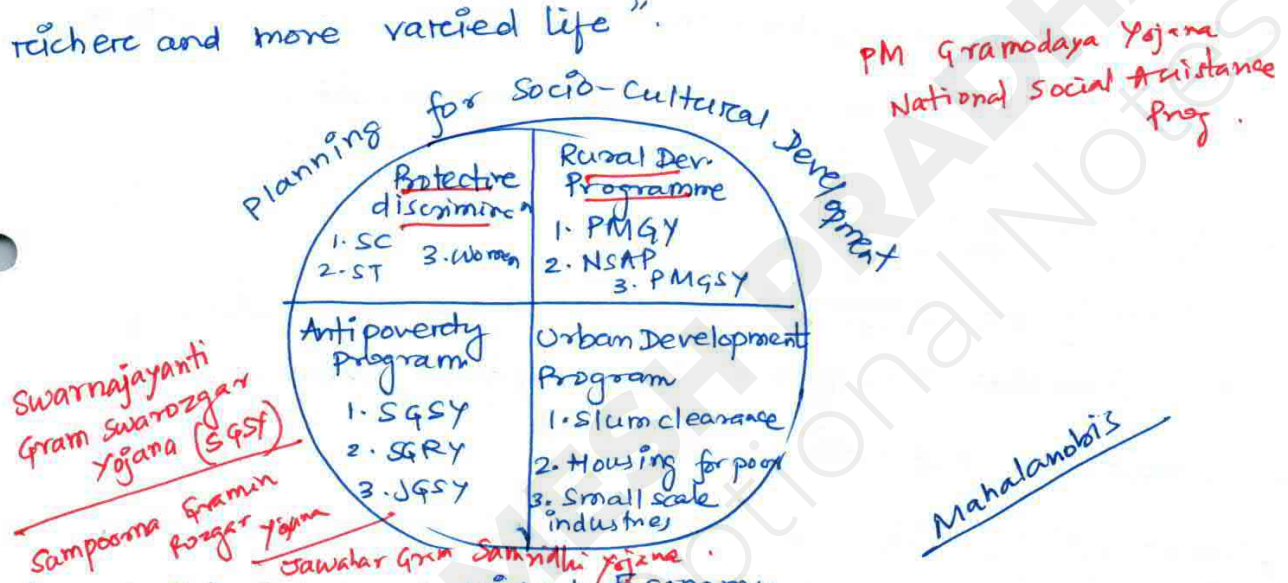 reichere and more varcied life".
PM Gramodaya Yojana
National Social Assistance
Prog.
Planning for Socio-Cultural Development
Protective
discriminc^n
1. SC
2. ST
3. Women
Rural Dev.
Programme
1. PMGY
2. NSAP
3. PMGSY
Antipoverty
Program
1. SGSY
2. SGRY
3. JGSY
Urban Development
Program
1. Slum clearance
2. Housing for poor
3. Small scale
industries
Swarnajayanti
Gram Swarozgar
Yojana (SGSY)
Sampoorna Gramin
Rozgar Yojana
Jawahar Gram Samridhi Yojana.
Mahalanobis
MESH PRADHA
otional Notes